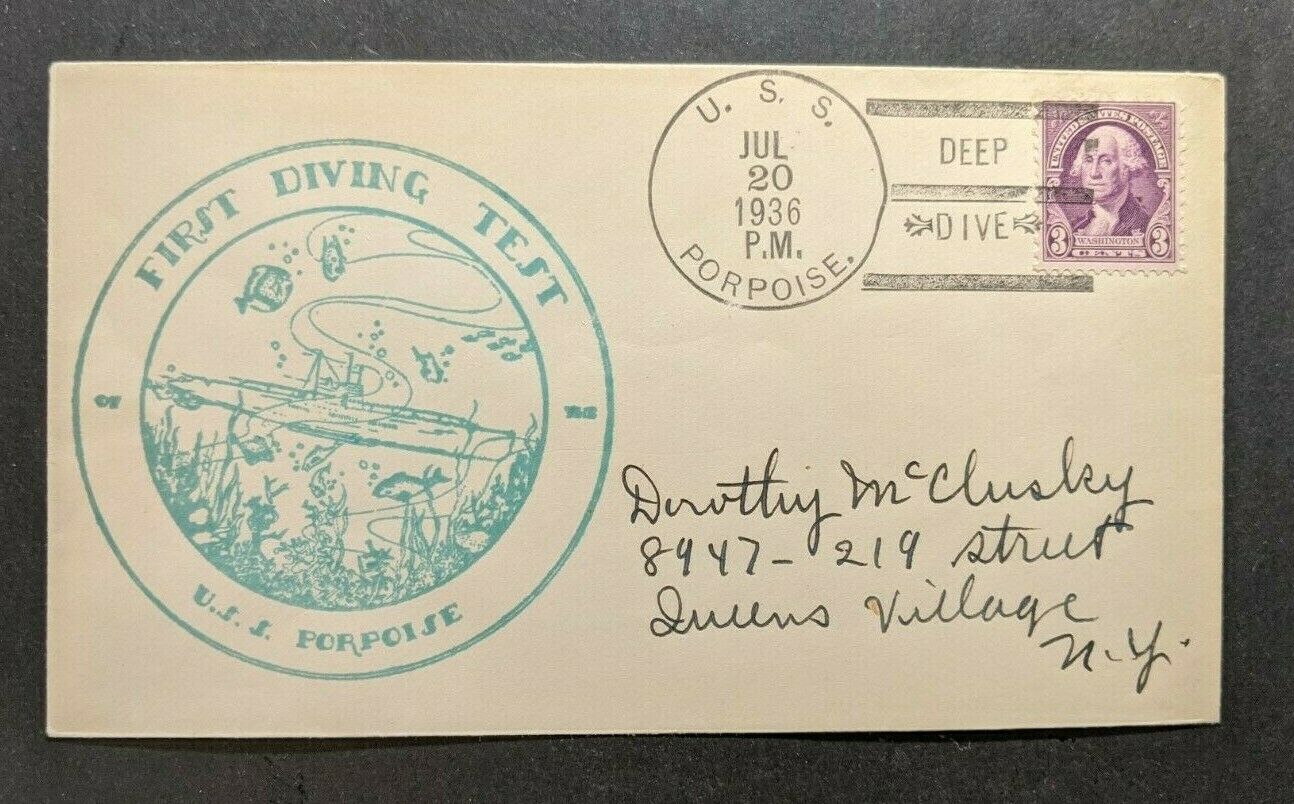 FIRST DIVING TEST
OF THE
U.S.S. PORPOISE
U. S. S.
JUL
20
1936
P.M.
PORPOISE.
DEEP
DIVE
UNITED STATES POSTAGE
3 WASHINGTON 3
CENTS
Dorothy McClusky
8947- 219 street
Queens Village
N.Y.